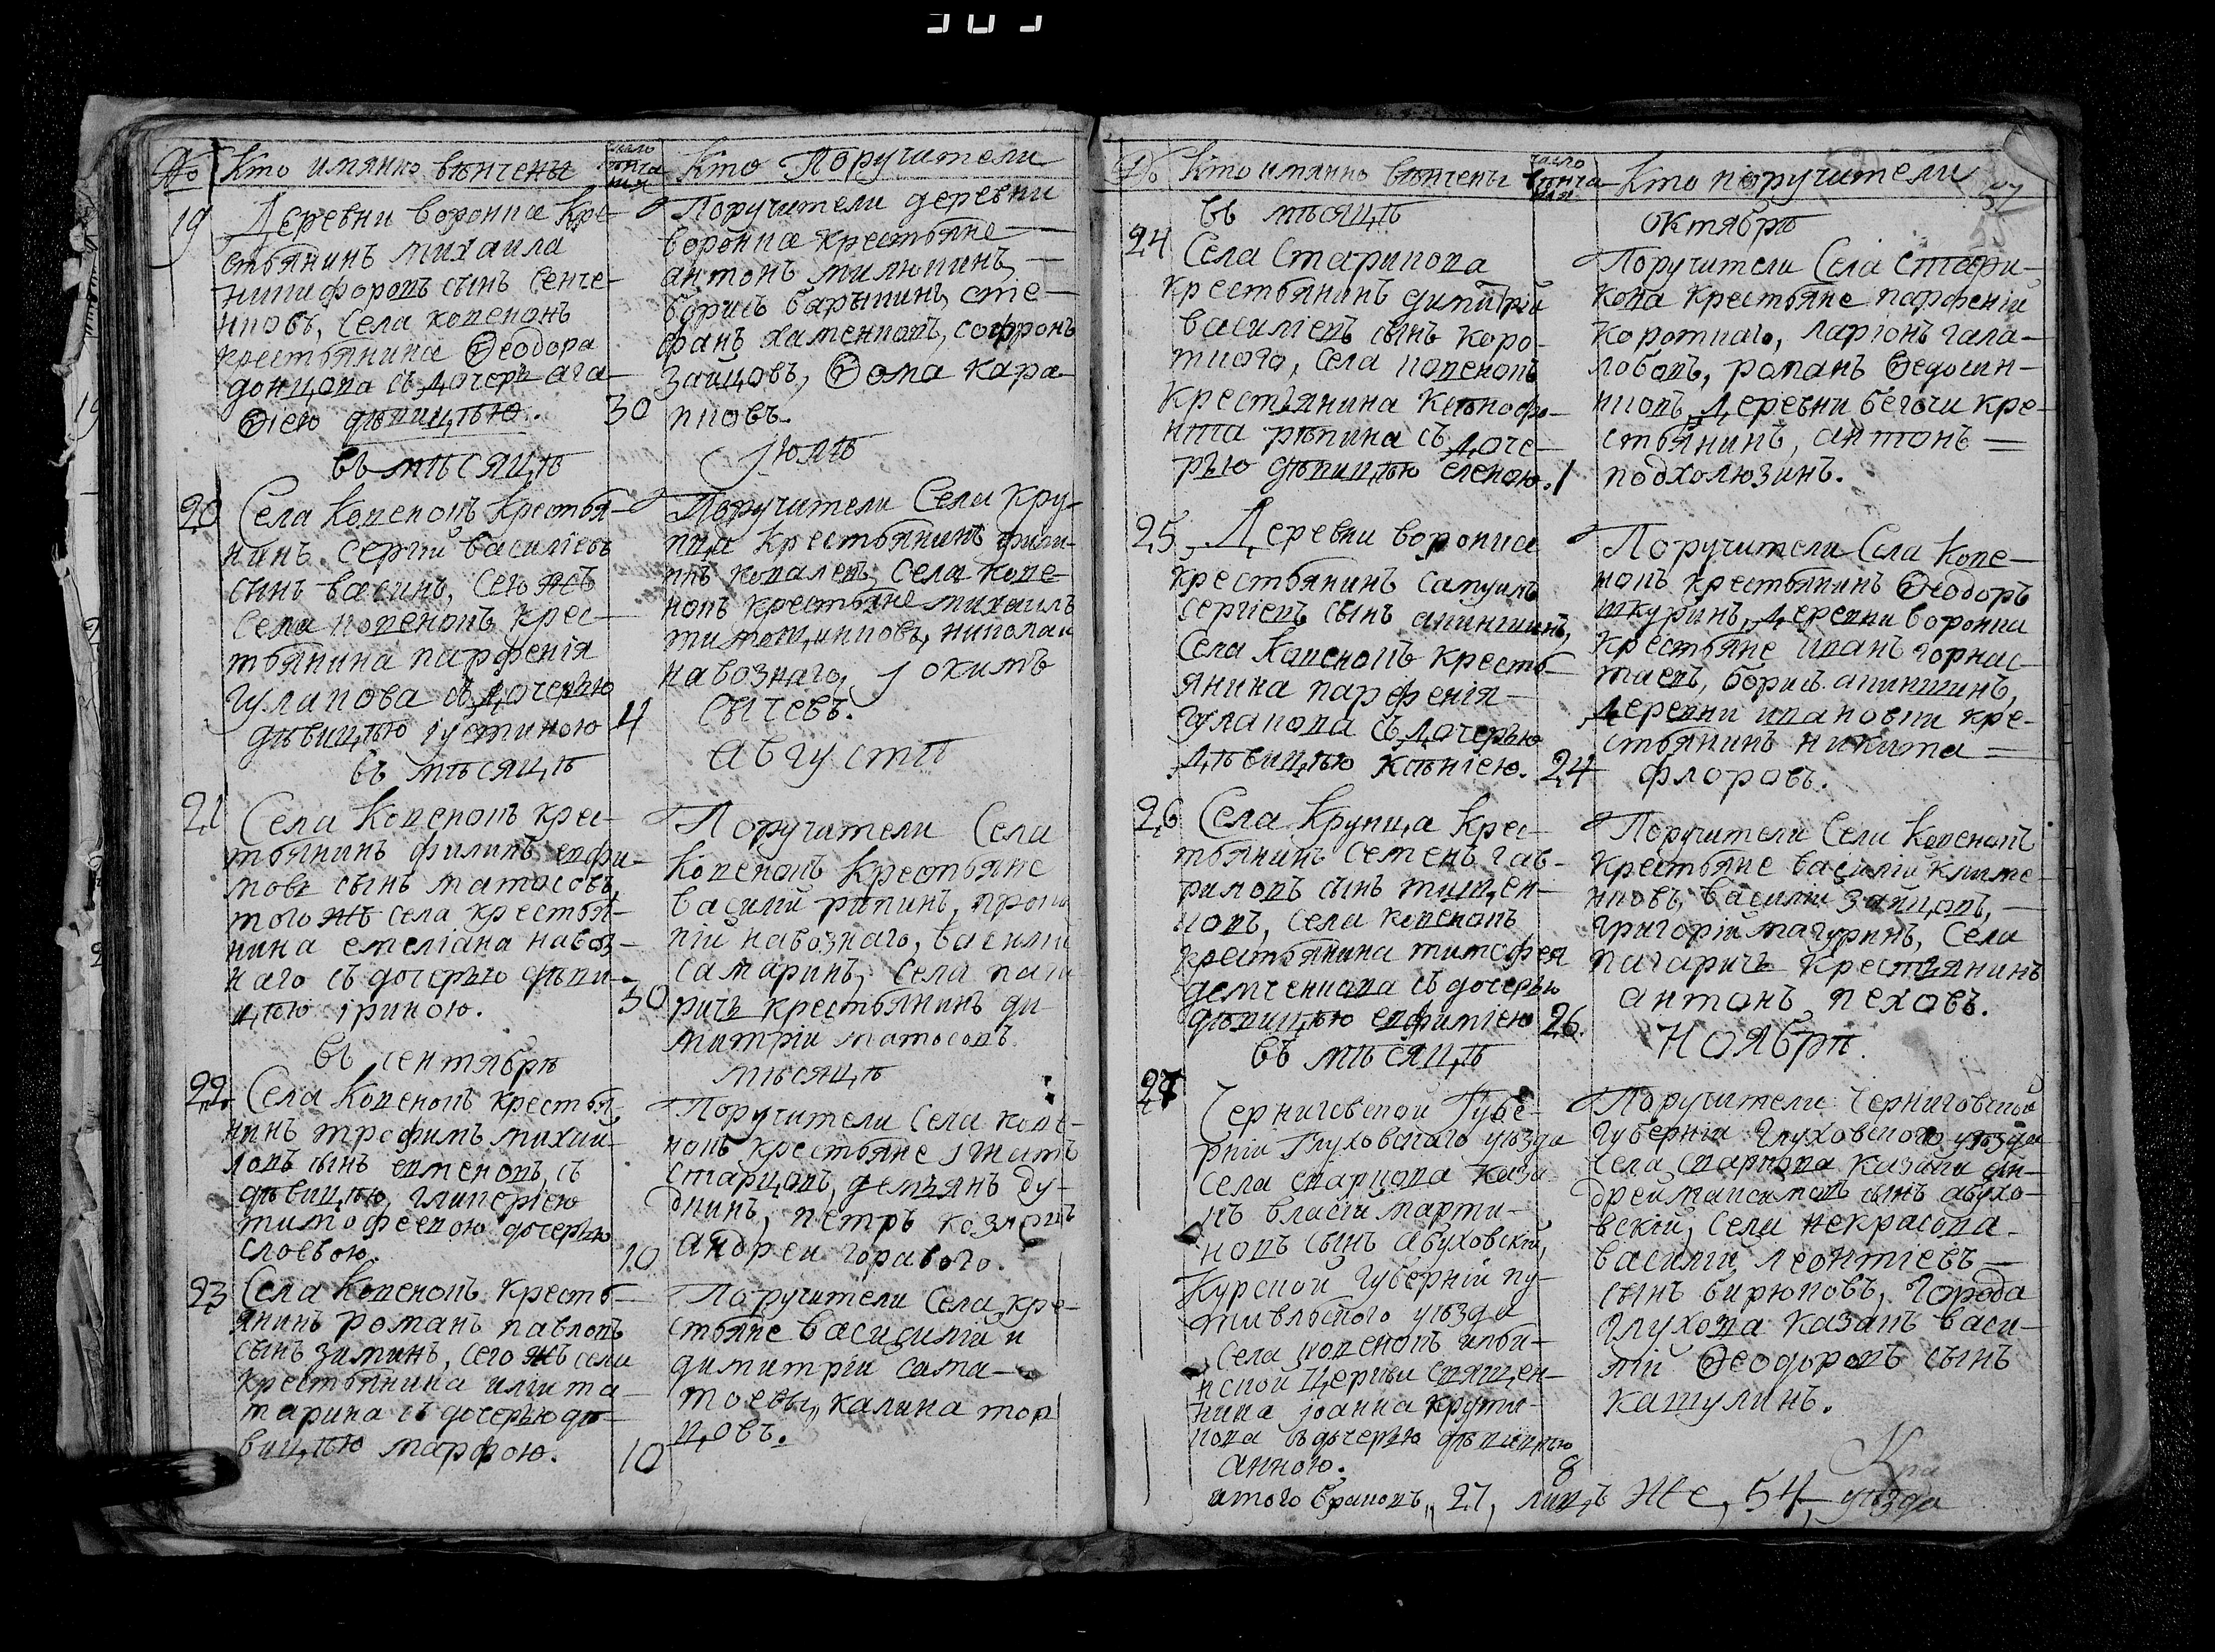 № Кто имянно венчены
число венчания
Кто Поручители
19
Деревни воронка Кре-
стьянинъ михаила
никифоровъ сынъ Сенче-
нковъ, Села коненокъ
крестьянина Ѳеодора
донцова съ дочерѣ ага-
ѳіею дѣвицѣю. 30
Поручители деревни
воронка крестьяне
антонъ милюкинъ,
борисъ барыкинъ, сте-
фанъ хаменковъ, софронъ
зайцовъ, Ѳома кара-
пковъ.
въ мѣсяцѣ
Июлѣ
20
Села Копенокъ Крестья-
нинъ Сергіи василіевъ
сынъ васинъ, Сего жъ
Села копенокъ крес-
тьянина парфенія
гулакова съ дочерью
дѣвицѣю іустиною 4
Поручители Села Кру-
пца Крестьянинъ фили-
пъ ковалевъ, Села копе-
нокъ крестьяне михаилъ
николаи
навознаго, Iокимъ
Сычевъ.
въ мѣсяцѣ
августѣ
21
Села Копенокъ крес-
тьянинъ филипъ евфи-
мовъ сынъ матосовъ,
того жъ села крестья-
нина емеліана навоз-
наго съ дочерью дѣви-
цѣю іриною. 30
Поручители Села
Копенокъ Крестьяне
василіи рипинъ, проко
пій навознаго, василіи
самаринъ, Села пага
ричъ крестьянинъ ди
митріи матосовъ
въ сентябрѣ
мѣсяцѣ
22
Села Копенокъ крестья
нинъ трофимъ михаи
ловъ сынъ еименовъ, съ
дѣвицѣю гликеріею
тимофеевою дочерью
Слоевою. 10
Поручители Села копе-
нокъ крестьяне Iгнатъ
Старцовъ, демьянъ ду-
бнинъ, петръ козловъ
андреи гораваго.
23
Села Копенокъ крестб-
янинъ романъ павловъ
сынъ зиминъ, сего жъ села
крестьянина иліи та-
тарина съ дочерью дѣ-
вицѣю марфою. 10
Поручители Села кре-
стьяне васисиліи и
димитріи сама-
тоевы, калина тор
цовъ.
№ Кто имянно венчены
число венчания
Кто поручители
57
въ мѣсяцѣ
октябрѣ
24
Села Старикова
крестьянинъ димитрій
василіевъ сынъ коро-
ткого, Села копенокъ
крестьянина Ксѣнофо-
нта рѣпина съ доче-
рью дѣвицѣю еленою. 1
Поручители Села Стари-
кова крестьяне парфеній
короткаго, ларіонъ гала-
лобовъ, романъ Ѳедосин-
ковъ, Деревни бегочи кре-
стьянинъ, антонъ
подхолюзинъ.
25
Деревни воронка
крестьянинъ Самуилъ
Сергіевъ сынъ аникшинъ,
Села Копенокъ крестб-
янина парфенія
гулакова съ дочерью
дѣвицѣю ксѣніею. 24
Поручители Села Копе-
нокъ крестьянинъ Ѳеодоръ
шкуринъ, деревни воронка
крестьяне иванъ горнас-
таевъ, борисъ аникшинъ,
Деревни ивановки кре-
стьянинъ никита
флоровъ.
26
Села Крупца Крес-
тьянинъ Семенъ гав-
риловъ сынъ тищен-
ковъ, Села копенокъ
крестьянина тимофея
демченкова съ дочерью
дѣвицѣю евфиміею 26.
Поручители Села Копенокъ
Крестьяне василіи климе-
нковъ, василіи Зайцовъ,
григоріи магуринъ, Села
пагаричъ крестьянинъ
антонъ пеховъ.
въ мѣсяцѣ
ноябрѣ.
27
Черниговской Губе-
рніи Глуховскаго уѣзда
Села старкова каза
къ власіи марти-
новъ сынъ обуховскій,
Курской губерніи пу-
тивльского уѣзда
Села копенокъ
нской церкви священ-
ника іоанна крути-
кова съ дочерью дѣвицѣю
анною. 8
Поручители Черниговской
губерніи Глуховского уѣзда
Села старкова казаки ан-
дреи маисимовъ сынъ абухо-
вскій, Села некрасова
василій леонтіевъ
сынъ бирюковъ, города
глухова казакъ васи-
лій Ѳеодоровъ сынъ
кашулинъ.
итого браковъ, 27, лицъ же, 54, уѣзда